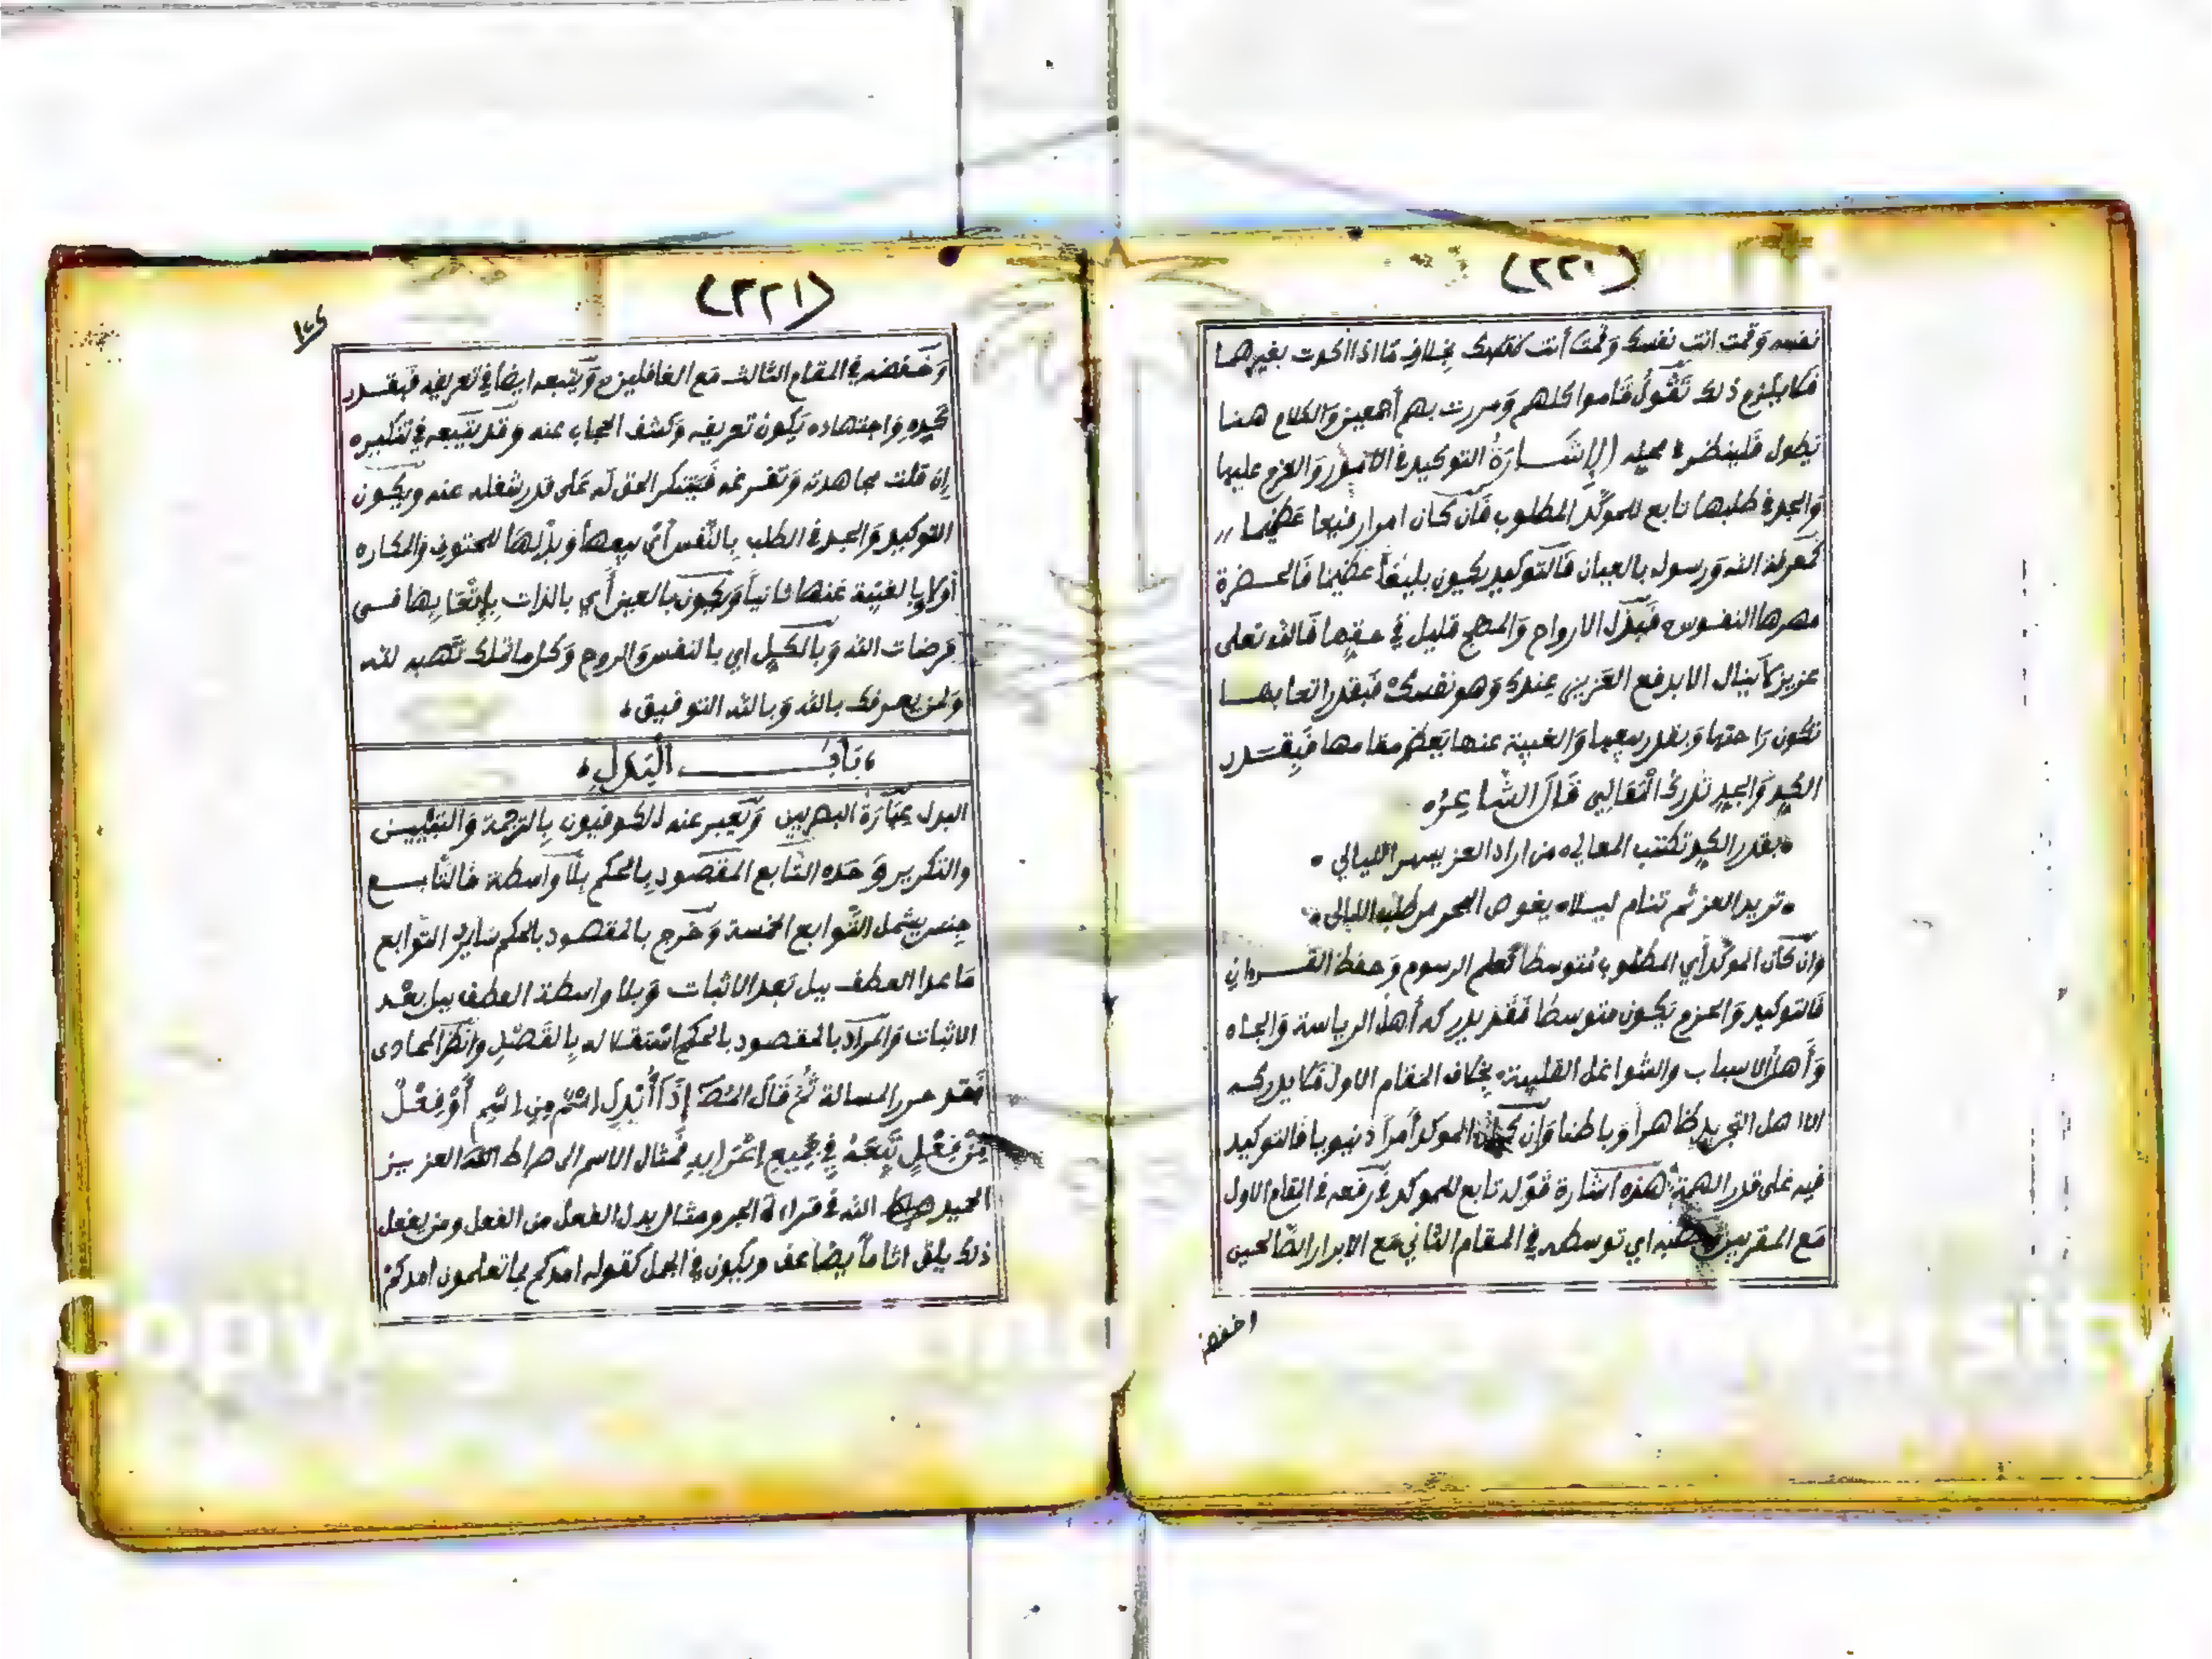 (٢٢٠)
نفسه وقمت انت نفسك وقمت أنت بخلاف ما اذا اكدت بغيرهما
فلا يلزم ذلك تقول قاموا كلهم ومررت بهم أجمعين والكلام هنا
يطول فلينظر في محله الإشارة التوكيد في الامور والعزم عليها
والجد في طلبها تابع للموكد المطلوب فان كان امرا رفيعا عظيما
كمعرفة الله ورسوله بالعيان فالتوكيد يكون بليغا عظيما فالحضرة
مهرها النفوس فبذل الارواح والمهج قليل في حقها فالله تعلى
عزيز لا ينال الا بدفع العزيز عندك وهو نفسك فبقدر اتعابها
تكون راحتها وبقدر بيعها والغيبة عنها يعظم مقامها فبقدر
الكد والجد تدرك المعالي قال الشاعر
بقدر الكد تكتسب المعالي من اراد العز يسهر الليالي
تريد العز ثم تنام ليلا يغوص البحر من طلب اللئالي
وان كان الموكد أي المطلوب متوسطا كعلم الرسوم وحفظ القرءان
فالتوكيد والحزم يكون متوسطا فقد يدركه أهل الرياسة والجاه
وأهل الاسباب والشواغل القلبية بخلاف المقام الاول فلا يدركه
الا اهل التجريد ظاهرا وباطنا وان كان الموكد أمرا دنيويا فالتوكيد
فيه على قدر الهمة هذه اشارة قوله تابع للموكد في رفعه في المقام الاول
مع المقربين ونصبه اي توسطه في المقام الثاني مع الابرار الصالحين
وخفضه
(٢٢١)
وخفضه في المقام الثالث مع الغافلين ويتبعه ايضا في تعريفه فبقدر
كده واجتهاده يكون تعريفه وكشف الحجاب عنه وقد يتبعه في تنكيره
إن قلت مجاهدته وتفرغه فيتنكر الحق له على قدر شغله عنه ويكون
التوكيد والجد في الطلب بالنفس أي ببيعها وبذلها للحتوف والمكاره
أولا وبالغيبة عنها ثانيا ويكون بالعين أي بالذات بإتعابها في
مرضات الله وبالكل اي بالنفس والروح وكل ما تملك تهبه لله
ولمن يعرفك بالله وبالله التوفيق
باب البدل
البدل عبارة البصريين ويعبر عنه الكوفيون بالترجمة والتبيين
والتكرير وحده التابع المقصود بالحكم بلا واسطة فالتابع
جنس يشمل التوابع الخمسة وخرج بالمقصود بالحكم ساير التوابع
ما عدا العطف ببل بعد الاثبات وبلا واسطة العطف ببل بعد
الاثبات والمراد بالمقصود بالحكم استقلاله بالقصد وانظر المحاذى
فقد حرر المسالة ثم قال إذا أبدل اسم من اسم أو فعل
من فعل تبعه في جميع إعرابه فمثال الاسم الى صراط العزيز
الحميد الله في قراءة الجر ومثال بدل الفعل من الفعل ومن يفعل
ذلك يلق اثاما يضاعف ويكون في الجمل كقوله امدكم بما تعلمون امدكم